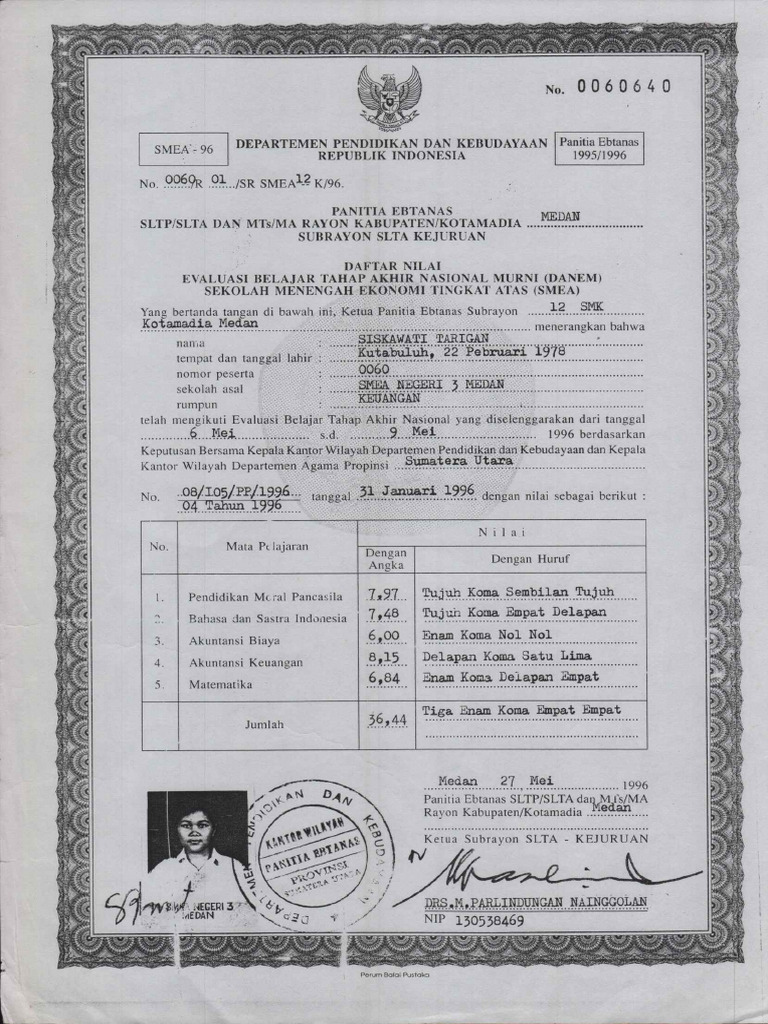 No. 0060640
SMEA - 96
DEPARTEMEN PENDIDIKAN DAN KEBUDAYAAN
REPUBLIK INDONESIA
Panitia Ebtanas
1995/1996
No. 0060/R 01 /SR SMEA 12 K/96.
PANITIA EBTANAS
SLTP/SLTA DAN MTs/MA RAYON KABUPATEN/KOTAMADIA MEDAN
SUBRAYON SLTA KEJURUAN
DAFTAR NILAI
EVALUASI BELAJAR TAHAP AKHIR NASIONAL MURNI (DANEM)
SEKOLAH MENENGAH EKONOMI TINGKAT ATAS (SMEA)
Yang bertanda tangan di bawah ini, Ketua Panitia Ebtanas Subrayon 12 SMK
Kotamadia Medan menerangkan bahwa
nama : SISKAWATI TARIGAN
tempat dan tanggal lahir : Kutabuluh, 22 Pebruari 1978
nomor peserta : 0060
sekolah asal : SMEA NEGERI 3 MEDAN
rumpun : KEUANGAN
telah mengikuti Evaluasi Belajar Tahap Akhir Nasional yang diselenggarakan dari tanggal
6 Mei s.d. 9 Mei 1996 berdasarkan
Keputusan Bersama Kepala Kantor Wilayah Departemen Pendidikan dan Kebudayaan dan Kepala
Kantor Wilayah Departemen Agama Propinsi Sumatera Utara
No. 08/I05/PP/1996 tanggal 31 Januari 1996 dengan nilai sebagai berikut :
04 Tahun 1996
No. Mata Pelajaran Nilai
Dengan Angka Dengan Huruf
1. Pendidikan Moral Pancasila 7,97 Tujuh Koma Sembilan Tujuh
2. Bahasa dan Sastra Indonesia 7,48 Tujuh Koma Empat Delapan
3. Akuntansi Biaya 6,00 Enam Koma Nol Nol
4. Akuntansi Keuangan 8,15 Delapan Koma Satu Lima
5. Matematika 6,84 Enam Koma Delapan Empat
Jumlah 36,44 Tiga Enam Koma Empat Empat
Medan 27 Mei 1996
Panitia Ebtanas SLTP/SLTA dan MTs/MA
Rayon Kabupaten/Kotamadia Medan
Ketua Subrayon SLTA - KEJURUAN
DEPARTEMEN PENDIDIKAN DAN KEBUDAYAAN
KANTOR WILAYAH
PANITIA EBTANAS
PROVINSI
SUMATERA UTARA
NEGERI 3
MEDAN
DRS.M.PARLINDUNGAN NAINGGOLAN
NIP 130538469
Perum Balai Pustaka